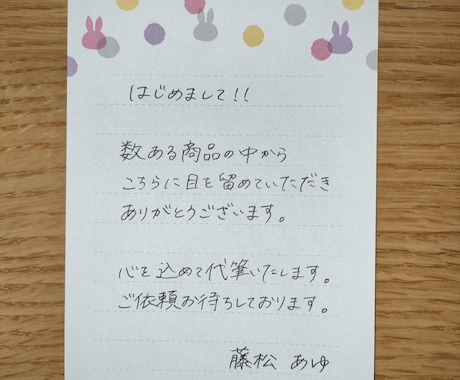 はじめまして!!
数ある商品の中から
こちらに目を留めていただき
ありがとうございます。
心を込めて代筆いたします。
ご依頼お待ちしております。
藤松 あゆ